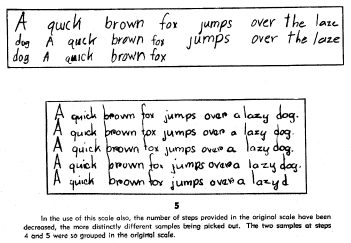 A quick brown fox jumps over the laze
dog A quick brown fox jumps over the laze
dog A quick brown fox
A quick brown fox jumps over a lazy dog.
A quick brown fox jumps over a lazy dog.
A quick brown fox jumps over a lazy dog.
A quick brown fox jumps over a lazy dog.
A quick brown fox jumps over a lazy d
5
In the use of this scale also, the number of steps provided in the original scale have been
decreased, the more distinctly different samples being picked out. The two samples at steps
4 and 5 were so grouped in the original scale.